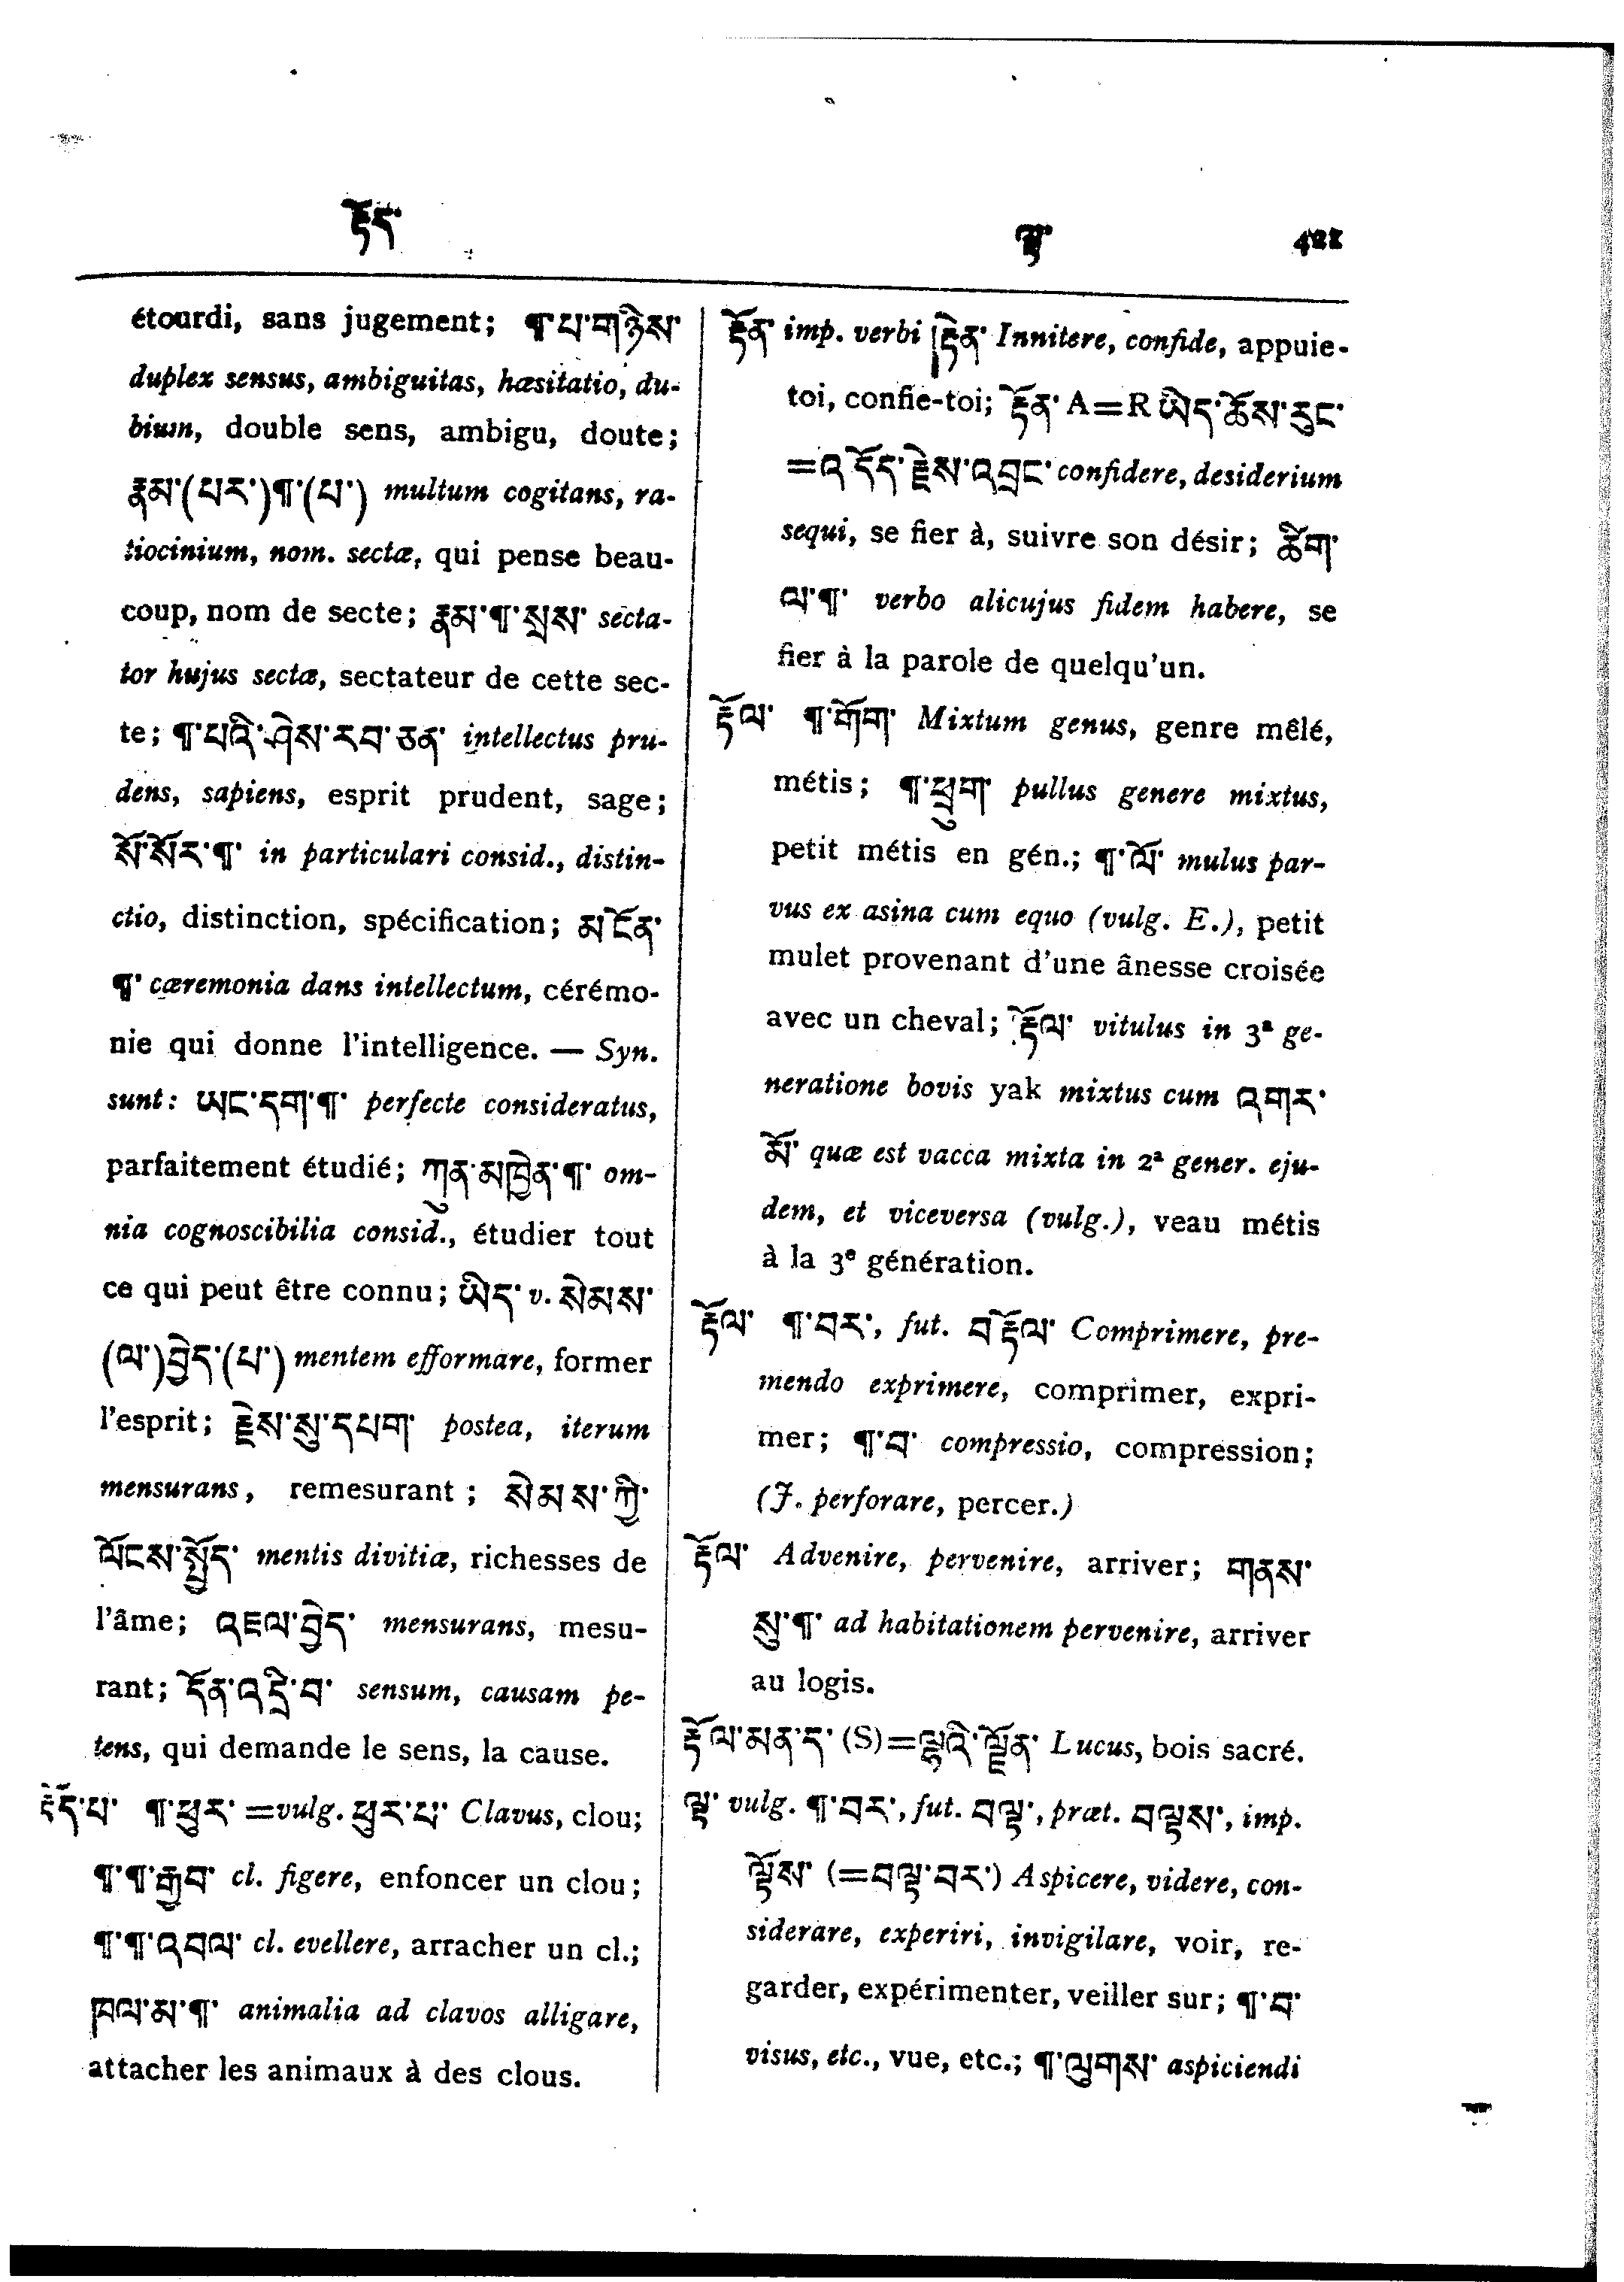 རྟོད་
ལྟ་ 421
étourdi, sans jugement; ¶་པ་གཉིས་
duplex sensus, ambiguitas, hæsitatio, du-
bium, double sens, ambigu, doute;
རྣམ་(པར་)¶་(པ་) multum cogitans, ra-
tiocinium, nom. sectæ, qui pense beau-
coup, nom de secte; རྣམ་¶་སྲས་ secta-
tor hujus sectæ, sectateur de cette sec-
te; ¶་པའི་ཤེས་རབ་ཅན་ intellectus pru-
dens, sapiens, esprit prudent, sage;
སོ་སོར་¶་ in particulari consid., distin-
ctio, distinction, spécification; མངོན་
¶་ cæremonia dans intellectum, cérémo-
nie qui donne l'intelligence. — Syn.
sunt: ཡང་དག་¶་ perfecte consideratus,
parfaitement étudié; ཀུན་མཁྱེན་¶་ om-
nia cognoscibilia consid., étudier tout
ce qui peut être connu; ཡིད་ v. སེམས་
(ལ་)བྱེད་(པ་) mentem efformare, former
l'esprit; རྗེས་སུ་དཔག་ postea, iterum
mensurans, remesurant; སེམས་ཀྱི་
ལོངས་སྤྱོད་ mentis divitiæ, richesses de
l'âme; འཇལ་བྱེད་ mensurans, mesu-
rant; དོན་འདྲི་བ་ sensum, causam pe-
tens, qui demande le sens, la cause.
རྟོད་པ་ ¶་ཕུར་ =vulg. ཕུར་པ་ Clavus, clou;
¶་¶་རྒྱབ་ cl. figere, enfoncer un clou;
¶་¶་འབལ་ cl. evellere, arracher un cl.;
ཁལ་མ་¶་ animalia ad clavos alligare,
attacher les animaux à des clous.
རྟོན་ imp. verbi རྟེན་ Innitere, confide, appuie-
toi, confie-toi; རྟོན་ A=R ཡིད་ཆོས་རུང་
=འདོད་རྗེས་འབྲང་ confidere, desiderium
sequi, se fier à, suivre son désir; ཚིག་
ལ་¶་ verbo alicujus fidem habere, se
fier à la parole de quelqu'un.
རྟོལ་ ¶་གོག་ Mixtum genus, genre mêlé,
métis; ¶་ཕྲུག་ pullus genere mixtus,
petit métis en gén.; ¶་ལོ་ mulus par-
vus ex asina cum equo (vulg. E.), petit
mulet provenant d'une ânesse croisée
avec un cheval; རྟོལ་ vitulus in 3ª ge-
neratione bovis yak mixtus cum འགར་
མོ་ quæ est vacca mixta in 2ª gener. eju-
dem, et viceversa (vulg.), veau métis
à la 3e génération.
རྟོལ་ ¶་བར་, fut. བརྟོལ་ Comprimere, pre-
mendo exprimere, comprimer, expri-
mer; ¶་བ་ compressio, compression;
(J. perforare, percer.)
རྟོལ་ Advenire, pervenire, arriver; གནས་
སུ་¶་ ad habitationem pervenire, arriver
au logis.
རྟོལ་མན་ད་ (S)=ལྷའི་ལྗོན་ Lucus, bois sacré.
ལྟ་ vulg. ¶་བར་, fut. བལྟ་, præt. བལྟས་, imp.
ལྟོས་ (=བལྟ་བར་) Aspicere, videre, con-
siderare, experiri, invigilare, voir, re-
garder, expérimenter, veiller sur; ¶་བ་
visus, etc., vue, etc.; ¶་ལུགས་ aspiciendi